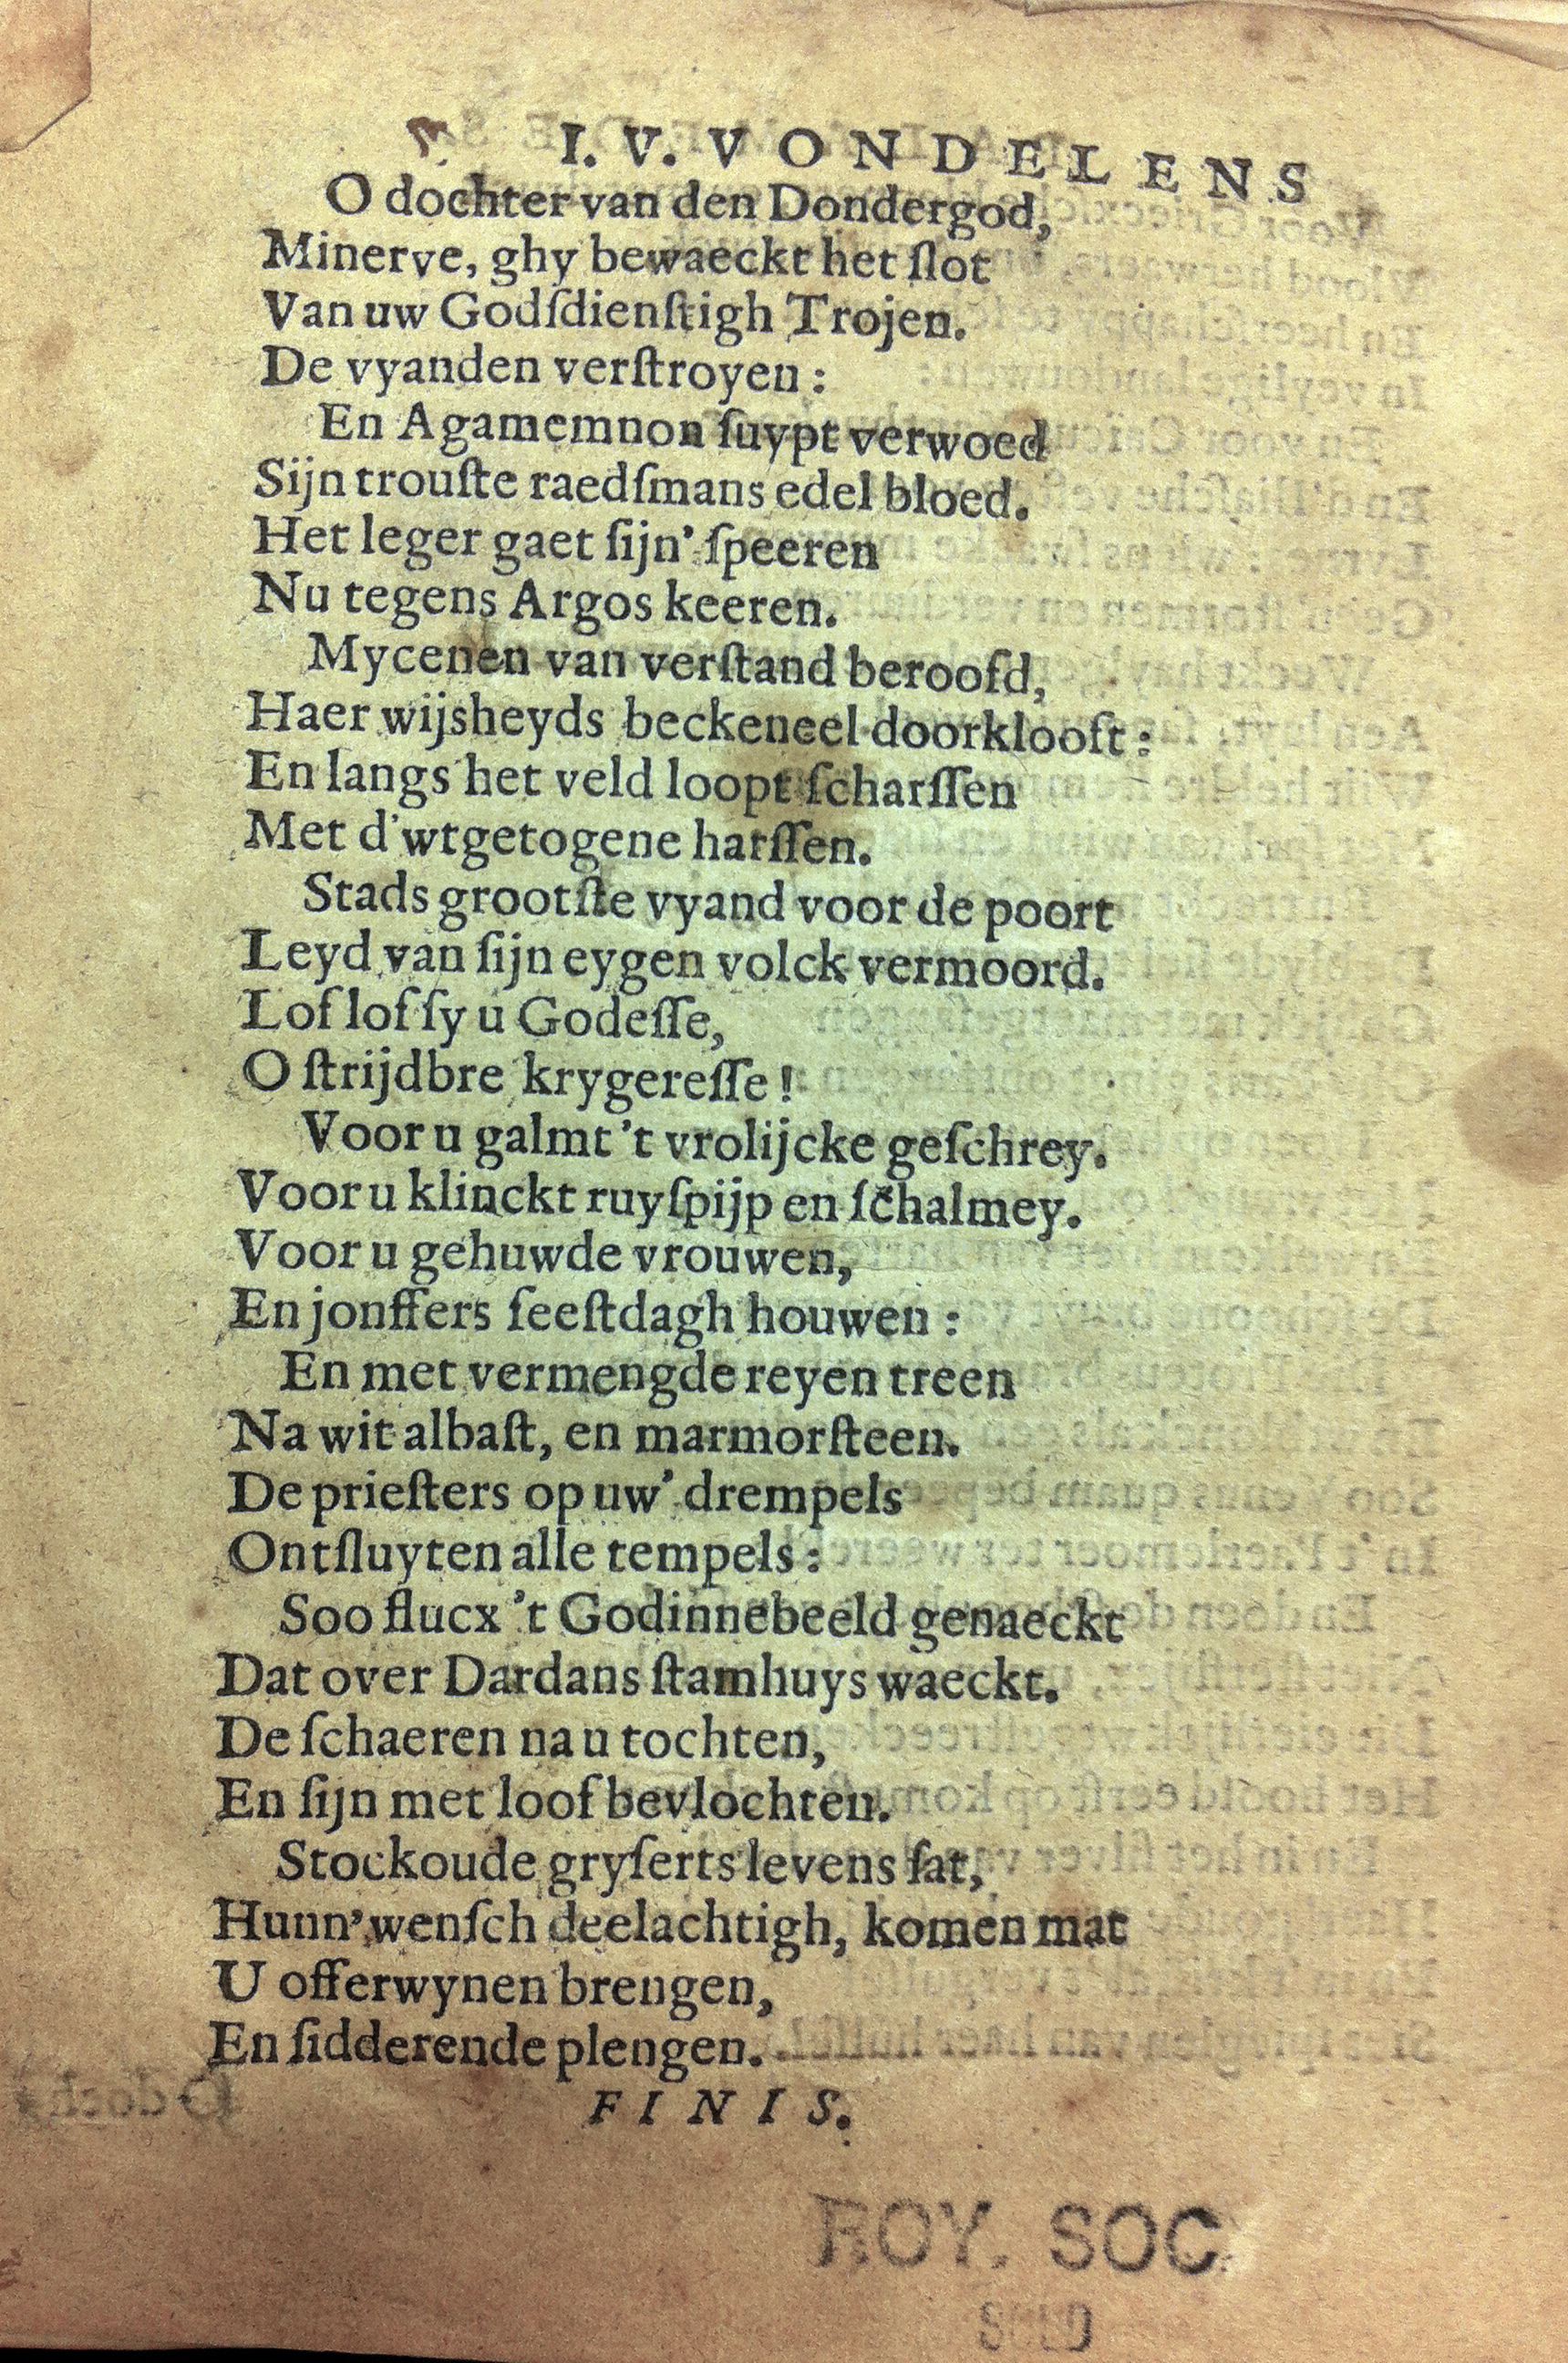 I. V. VONDELENS
O dochter van den Dondergod,
Minerve, ghy bewaeckt het ſlot
Van uw Godſdienſtigh Trojen.
De vyanden verſtroyen:
En Agamemnon ſuypt verwoed
Sijn trouſte raedſmans edel bloed.
Het leger gaet ſijn' ſpeeren
Nu tegens Argos keeren.
Mycenen van verſtand beroofd,
Haer wijsheyds beckeneel doorklooft:
En langs het veld loopt ſcharſſen
Met d'wtgetogene harſſen.
Stads grootſte vyand voor de poort
Leyd van ſijn eygen volck vermoord.
Lof lof ſy u Godeſſe,
O ſtrijdbre krygereſſe!
Voor u galmt 't vrolijcke geſchrey.
Voor u klinckt ruyſpijp en ſchalmey.
Voor u gehuwde vrouwen,
En jonffers feeſtdagh houwen:
En met vermengde reyen treen
Na wit albaſt, en marmorſteen.
De prieſters op uw' drempels
Ontſluyten alle tempels:
Soo flucx 't Godinnebeeld genaeckt
Dat over Dardans ſtamhuys waeckt.
De ſchaeren na u tochten,
En ſijn met loof bevlochten.
Stockoude gryſerts levens ſat,
Hunn' wenſch deelachtigh, komen mat
U offerwynen brengen,
En ſidderende plengen.
FINIS.
ROY. SOC
SOLD